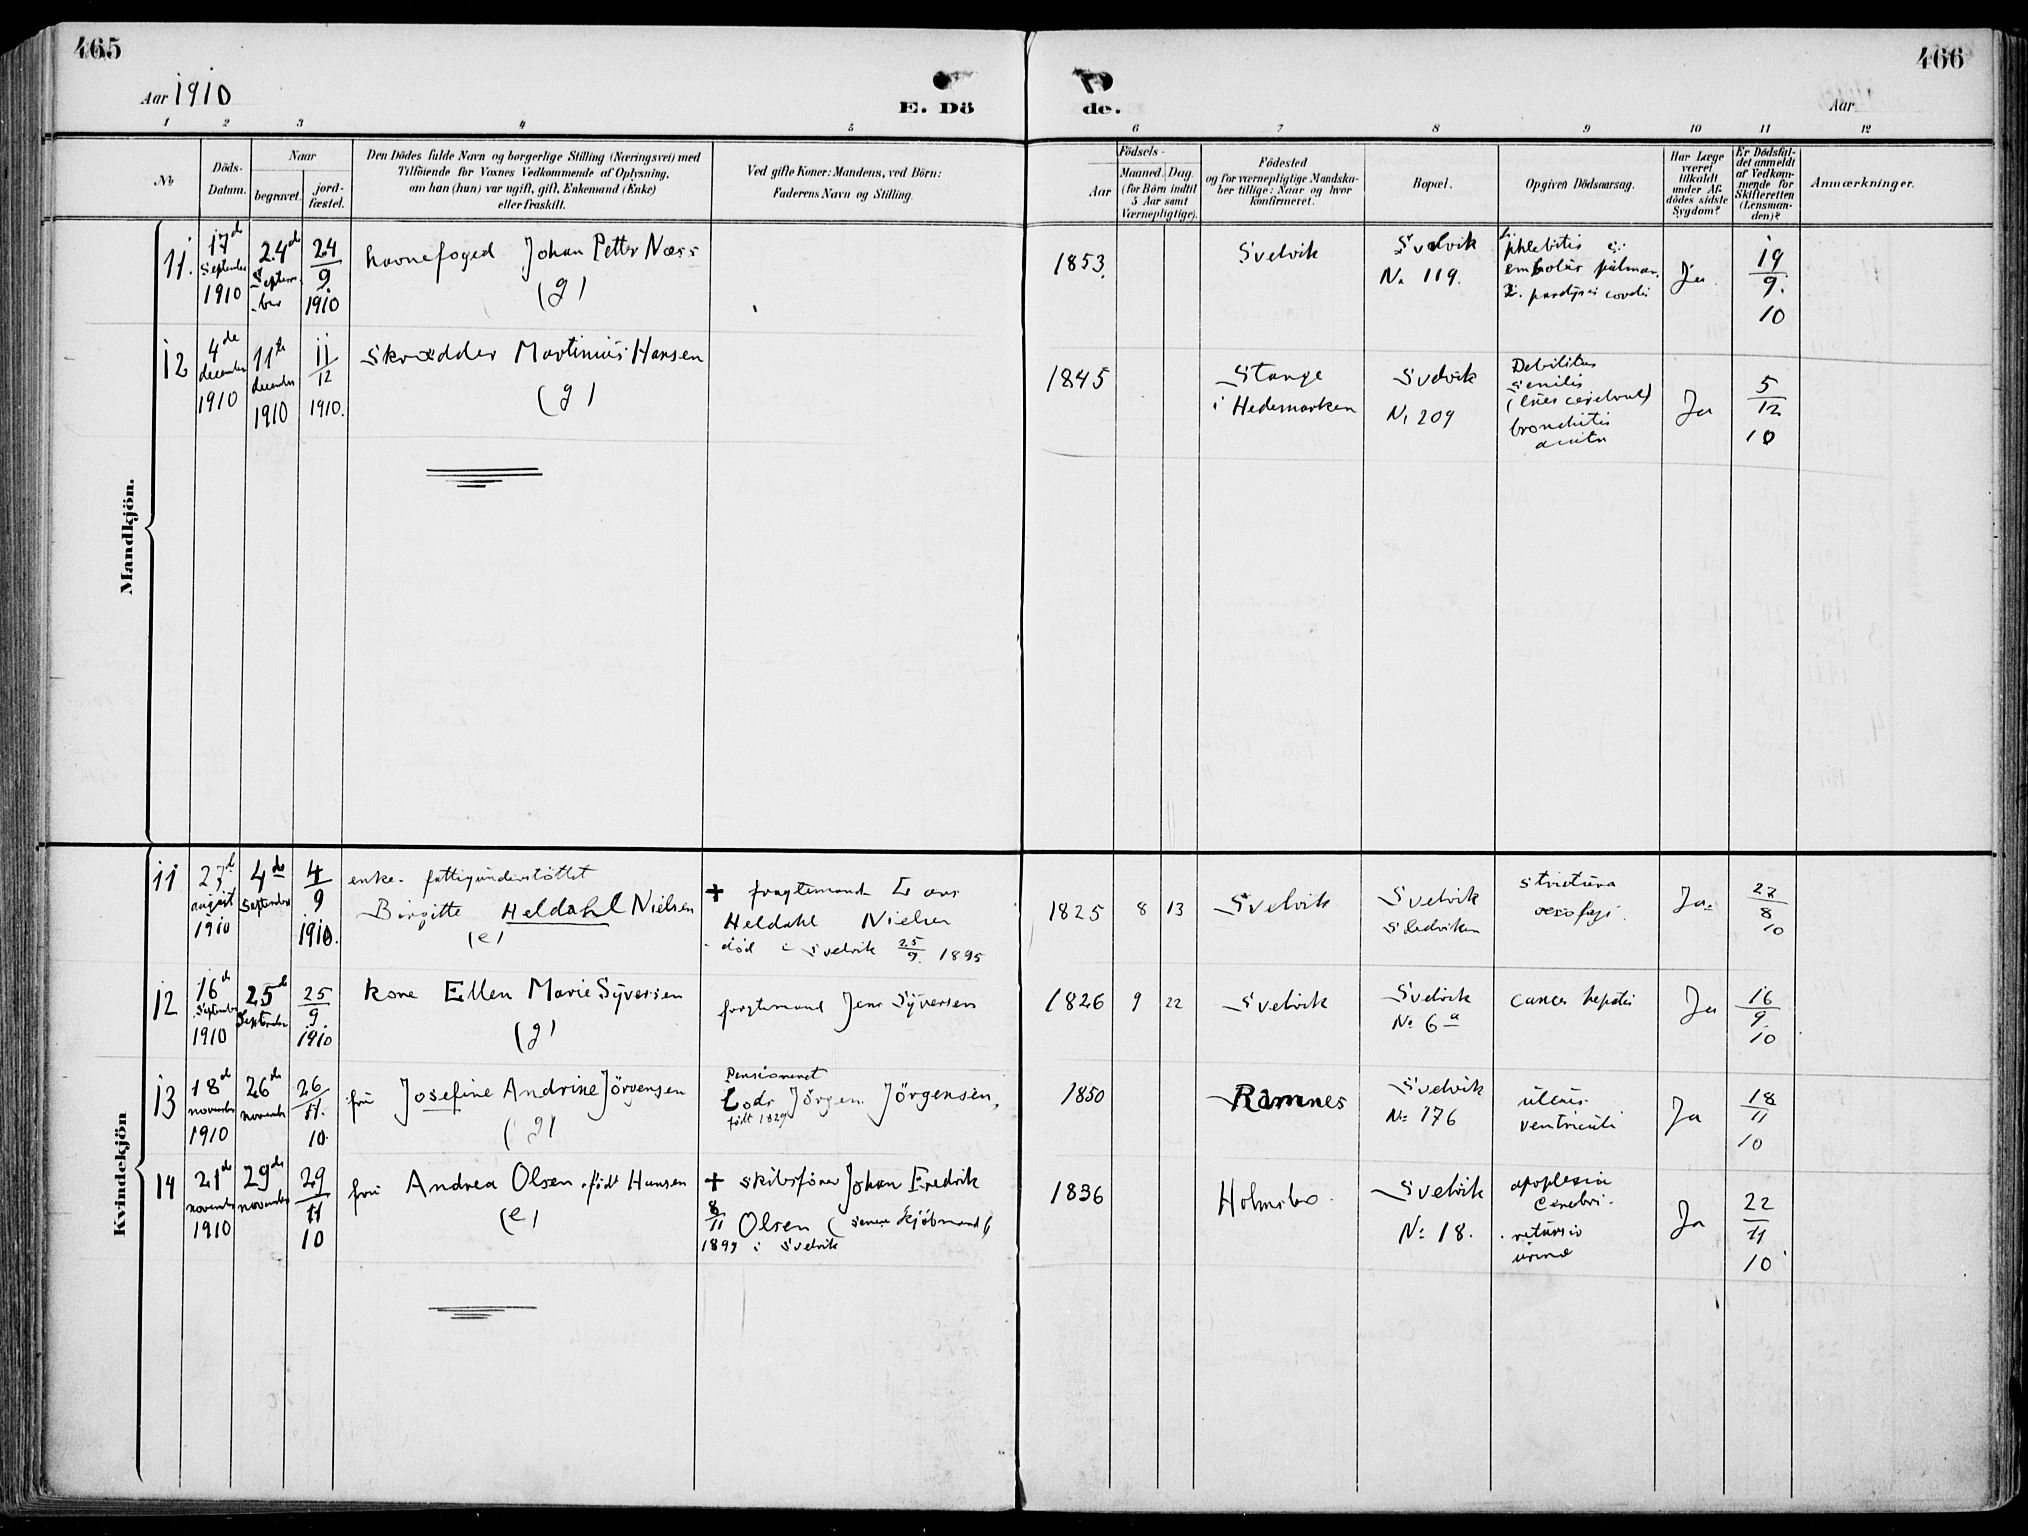 465
466
Aar 1910
E. Dö
de.
Aar
1 2 3 4 5 6 7 8 9 10 11 12
No
Döds-
Datum.
Naar
begravet.
jord-
fæstet.
Den Dödes fulde Navn og borgerlige Stilling (Næringsvei) med
Tilföiende for Voxnes Vedkommende af Oplysning,
om han (hun) var ugift, gift, Enkemand (Enke)
eller fraskilt.
Ved gifte Koner: Mandens, ved Börn:
Faderens Navn og Stilling.
Födsels-
Aar
Maaned. Dag.
(for Börn indtil
5 Aar samt
Værnepligtige).
Födested
og for værnepligtige Mandska-
ber tillige: Naar og hvor
Konfirmeret.
Bopæl.
Opgiven Dödsaarsag.
Har Læge
været
tilkaldt
under Af-
dödes sidste
Sygdom?
Er Dödsfal-
det anmeldt
af Vedkom-
mende for
Skifteretten
(Lensman-
den)?
Anmærkninger.
Mandkjön.
11.
17d
September
1910
24d
Septem-
-ber
24
9.
1910
havnefoged Johan Petter Næss
(g)
1853.
Svelvik
Svelvik
No 119.
phlebitis
Ja.
19
9.
10
12
4de
december
1910
11te
december
1910
11
12
1910.
Skrædder Martinius Hansen
(g)
1845
Stange
i Hedemarken
Svelvik
No 209
Debilitas
senilis
bronchitis
Ja
5
12
10
Kvindekjön
11
27d
august
1910
4de
September
4
9
1910.
enke. fattigunderstøttet
Birgitte Heldahl Nielsen
(e)
+ fragtemand Lars
Heldahl Nielsen
død i Svelvik 25/9. 1895
1825 8 13
Svelvik
Svelvik
strictura
Ja.
27
8
10
12
16de
September
1910
25d
September
25
9
1910
kone Ellen Marie Syversen
(g)
fragtemand Jens Syversen
1826 9 22
Svelvik
Svelvik
No 6a
cancer hepatis
Ja
16
9.
10
13
18d
november
1910
26de
november
26
11.
10.
fru Josefine Andrine Jörgensen
(g)
Pensioneret
Lods Jörgen Jörgensen,
født 1829
1850
Ramnes
Svelvik
No 176
ulcus
ventriculi
Ja
18
11
10
14
21de
november
1910
29de
november
29
11
10
fru Andrea Olsen. født Hansen
(e)
+ skibsfører Johan Fredrik
8/11 Olsen (senere kjøbmand)
1899 i Svelvik
1836
Holmsbo.
Svelvik
No 18.
apoplexia
cerebri.
urinæ
Ja
22
11
10